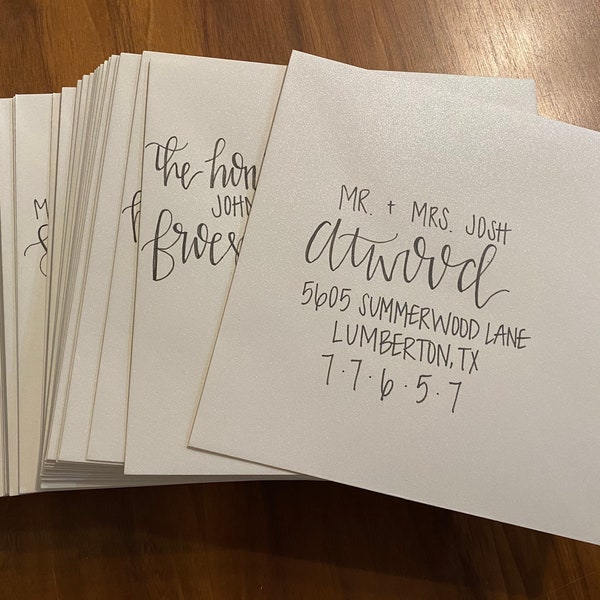 MR. + MRS. JOSH
atwood
5605 SUMMERWOOD LANE
LUMBERTON, TX
7·7·6·5·7
the hon
JOHN